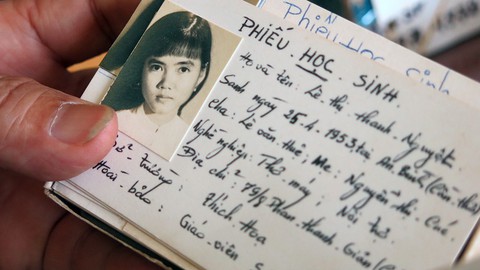 Phiếu Học Sinh
PHIẾU . HỌC . SINH.
Họ và tên : Lê thị thanh Nguyệt
Sanh ngày 25.4.1953 tại An Bình (Cần thơ)
Cha: Lê văn thế ; Mẹ: Nguyễn thị Cúc
Nghề nghiệp: Thợ may ; Nội trợ
Địa chỉ: 79/9 Phan thanh Giản
Sở trường : Thích Hoa
Hoài bảo : Giáo viên